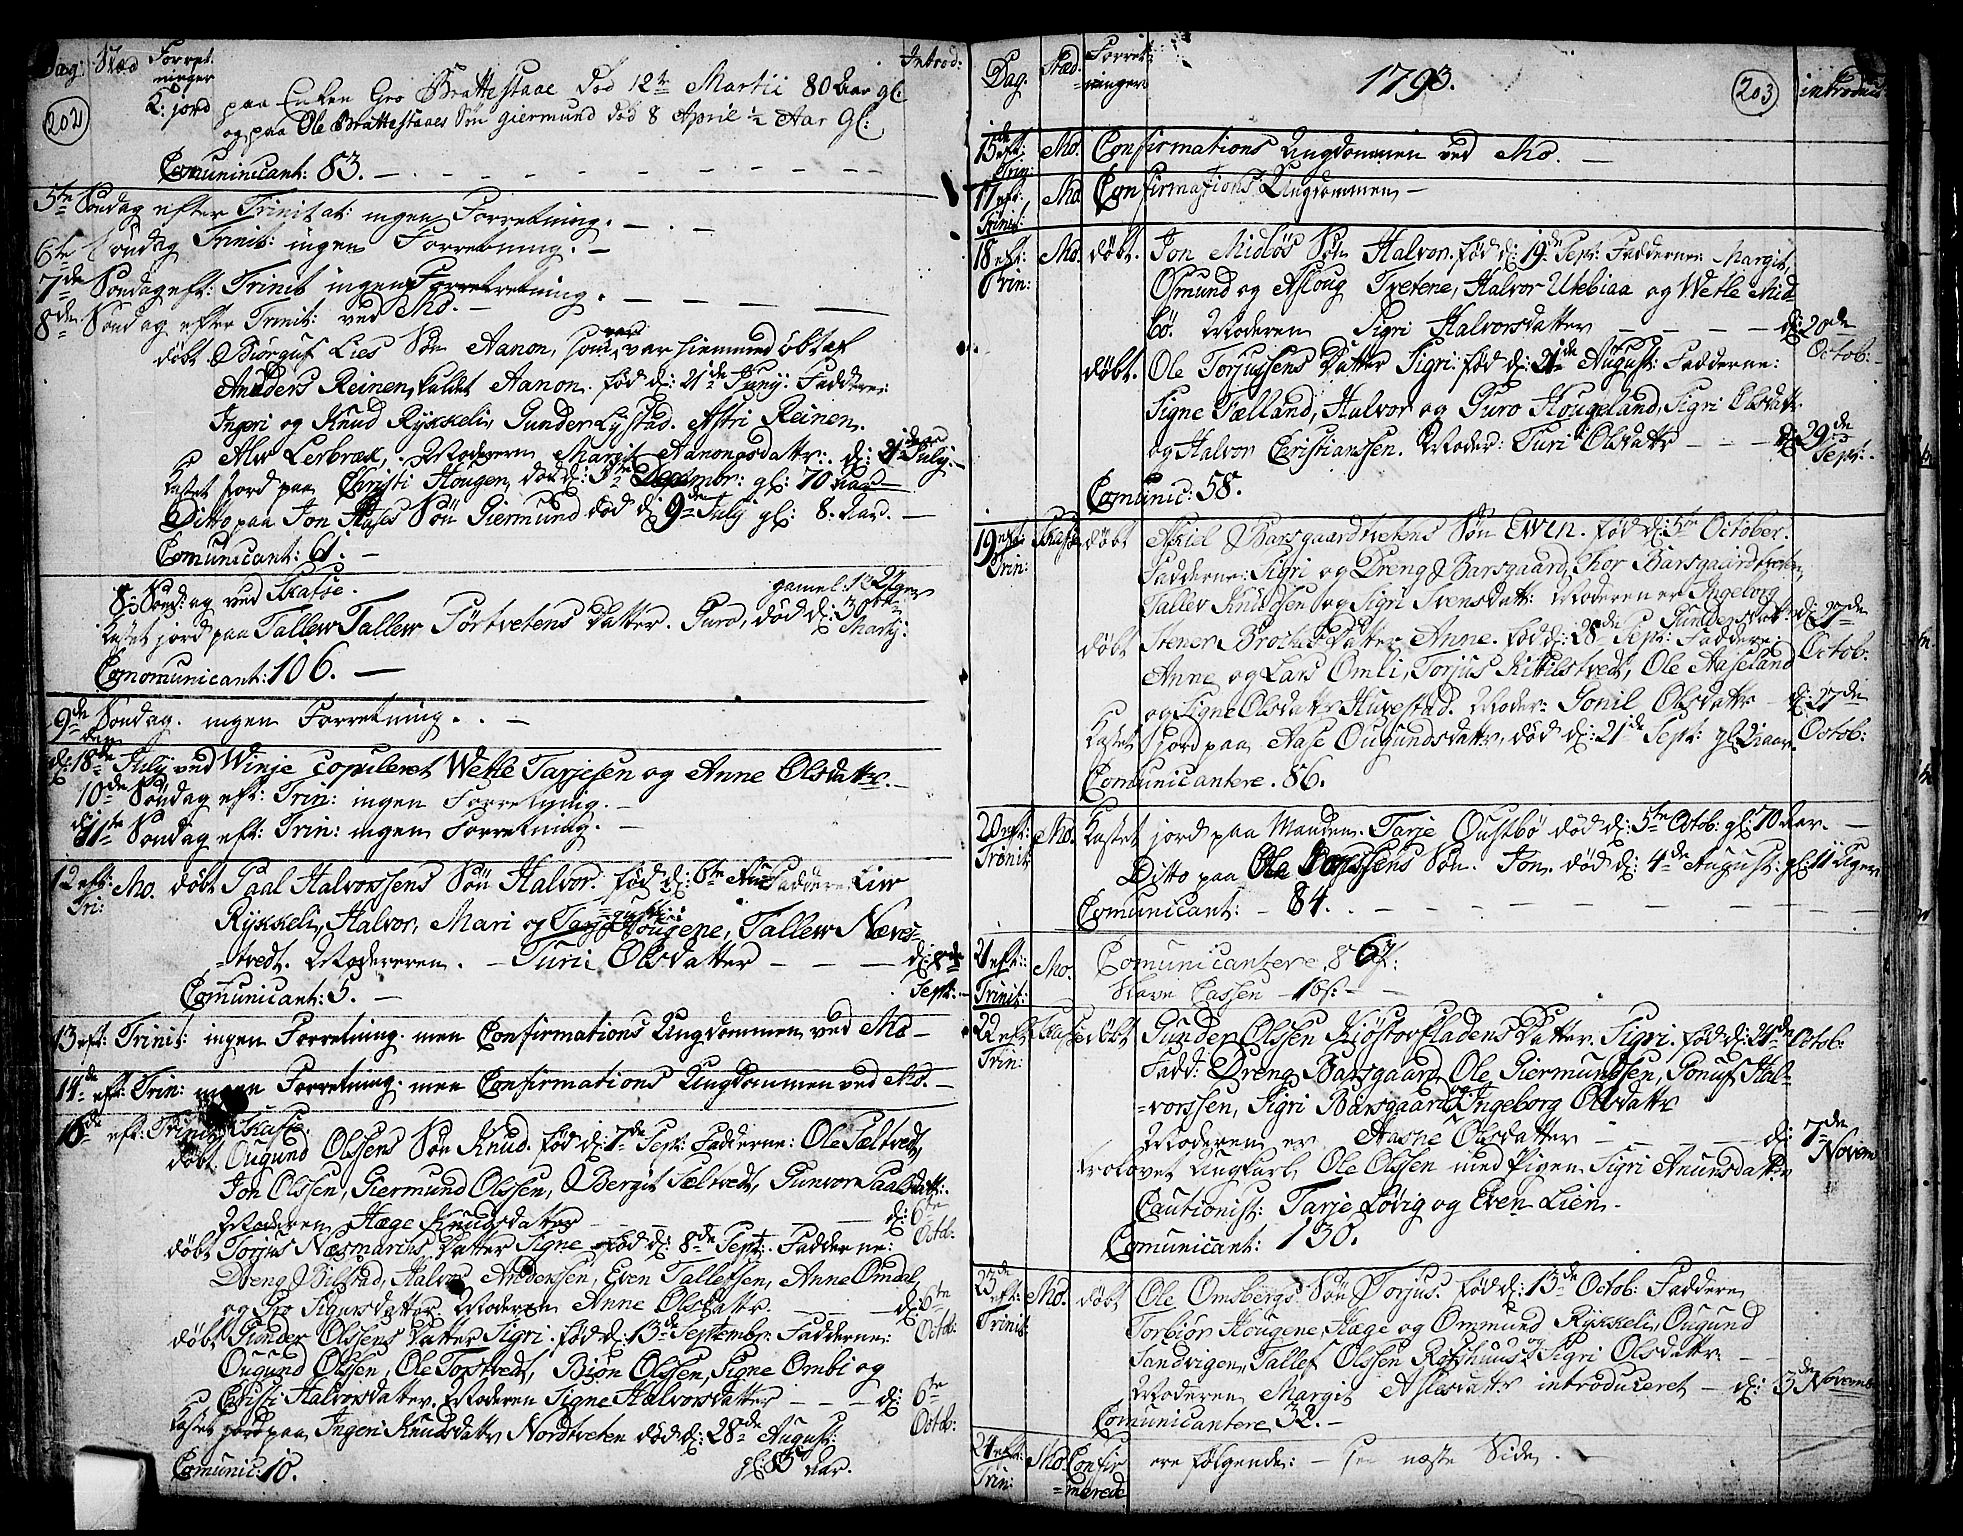 Dag: Stæd Forret
ninger
Introd:
202
K: jord paa Enken Gro Brattestaae død 12te Martii 80 Aar gl:
og paa Ole Brattestaaes Søn Giermund død 8 April ½ Aar Gl:
Comuninicant: 83. —
5te Søndag efter Trinitat: ingen Forretning. —
6te Søndag Trinit: ingen Forretning. —
7de Søndag eft: Trinit ingen Forretretning. —
8de Søndag efter Trinit: ved Mo. —
døbt Biørguf Lies Søn Aanon, som var hiemmedøbt af
Anders Reinen, kaldet Aanon. fød d: 21de Junij. Faddere:
Ingeri og Knud Rykkeli, Gunder Lystad. Astri Reinen.
Alw Lerbræk, Moderen Margit Aanonosdattr: d: 21de July. —
Kastet jord paa Christi Hougen, død d: 5te Decembr: gl: 70 Aar —
Ditto paa Jon Hases Søn Giermund død d: 9de July gl: 8. Aar. —
Comunicant: 61. —
8: Søndag ved Skafse. gamel: 12 Uger
Kastet jord paa Tallew Tallew Førtvetens Datter. Guro, død d: 30te Martij.
Comomunicant: 106. —
9de Søndag. ingen Forretning. . —
d: 18de July ved Winje copuleret Wetle Tarjesen og Anne Olsdattr. —
10de Søndag eft: Trin: ingen Forretning. —
d: 11te Søndag eft: Trin: ingen Forretning. —
12 eft: Tri: Mo. døbt Paal Halvorssens Søn Halvor. fød d: 6te Au- Faddere Liw
=gustii:
Rykkeli, Halvor, Mari og Tarje Hougene, Tallew Næves-
=tvedt. Modereren. — Turi Olsdatter — — — d: 8de
Comunicant: 5. — Sept: —
13 eft: Trinit: ingen Forretning. men Confirmations Ungdommen ved Mo —
14de eft: Trin: ingen Forretning. men Confirmations Ungdommen ved Mo. —
16de eft: Trinit: Skafse.
døbt Ougund Olssens Søn Knud. fød d: 7de Sept: Fadderne: Ole Sæltvedt,
Jon Olssen, Giermund Olssen, Bergit Sæltvedt, Gunvor Paalsdatt:
Moderen Hæge Knudsdatter — — — d: 6te Octob:
døbt Torjus Næsmarchs Datter Signe fød d: 8de Sept: Fadderne:
Dreng Bilstad, Halvor Anderssen, Even Tallefsen, Anne Omdal,
og Gro Sigursdatter. Moderen Anne Olsdattr. — — — d: 6te
døbt Gunder Olssens Datter Sigri. fød d: 13de Septembr: Fadderne: Octob:
Ougund Olssen, Ole Tostvedt, Biøn Olssen, Signe Ombi og
Christi Halvorsdatter. Moderen Signe Halvorsdatter — — — d: 6te
Kastet jord paa Ingeri Knudsdattr Nordtveten død d: 28de August: Octob:
Comunic: 10. gl: 83 Aar.
Dag. Stæd. Forret-
=ninger
1793.
203
introduc
15de eft: Trin: Mo. Confirmations Ungdommen ved Mo. —
17 eft: Trinit: Mo Confirmations Ungdommen —
18 eft: Trin: Mo. døbt. Jon Midbøs Søn Halvor. fød d: 19de Sept: Fadderne: Margit,
Osmund og Asloug Tvetene, Halvor Utebiaa og Wetle Mid
bö. Moderen — Sigri Halvorsdatter — — — — d: 20de
Octob: —
døbt. Ole Torjussens Datter Sigri. fød d: 21de August: Fadderne:
Signe Fælland, Halvor og Guro Hougeland, Sigri Olsdattr
og Halvor Christianssen. Moder: Turi Olsdattr — — — d: 29de
Sept:
Comunic: 58.
19 eft: Trin: Skafse døbt Askiel Barsgaardtvetens Søn Ewen. fød d: 5te October.
Fadderne: Sigri og Dreng Barsgaard, Thor Barsgaardtveten
Tallev Knudsen og Sigri Svensdatt: Moderen er Ingeborg
Gundersdattr d: 27de
Octob:
døbt Stener Brobaks Datter Anne. fød d: 28de Sept: Faddere:
Anne og Lars Omli, Torjus Kittilstvedt, Ole Aaseland
og Signe Olsdattr Huvestad. Moder: Gonil Olsdattr — d: 27de
Kastet jord paa Aase Ougundsdattr, død d: 21de Sept: gl: 2 aar. Octob:
Comunicantere. 86.
20 eft: Trinit Mo. Kastet jord paa Manden. Tarje Oustbö død d: 5te Octob: gl: 70 Aar. —
Ditto paa Ole Torjussens Søn. Jon. død d: 4de August: gl: 11 Uger
Comunicant: — 84.
21 eft: Trinit: Mo. Comunicantere, 86
Stave Cassen — 16 s: —
22 eft Trin: Skafse døbt Gunder Olssen Kiøstovfladens Datter. Sigri. fød d: 21de Octob:
Fadd: Dreng Barsgaard, Ole Giermundsen, Gonuf Hal-
=vorssen, Sigri Barsgaard og Ingeborg Olsdattr
Moderen er Aasne Olsdatter — — — d: 7de
Novem
trolovet Ungkarl, Ole Olssen med Pigen Sigri Anunsdatter
Cautionist: Tarje Løvig og Even Lien.
Comunicant: 130.
23de eft: Trinit: Mo. døbt Ole Omsbergs Søn Torjus. fød d: 13de Octob: Faddere
Torbiør Hougene, Hæge og Ommund Rykkeli, Ougund
Sandvigen, Tallef Olssen Roshuus og Sigri Olsdattr —
Moderen Margit Aslesdattr introduceret — d: 3de Novembr
Comunicantere 32. —
24 eft: Trin: Mo. Confir
=merede ere følgende: — see næste Side. —